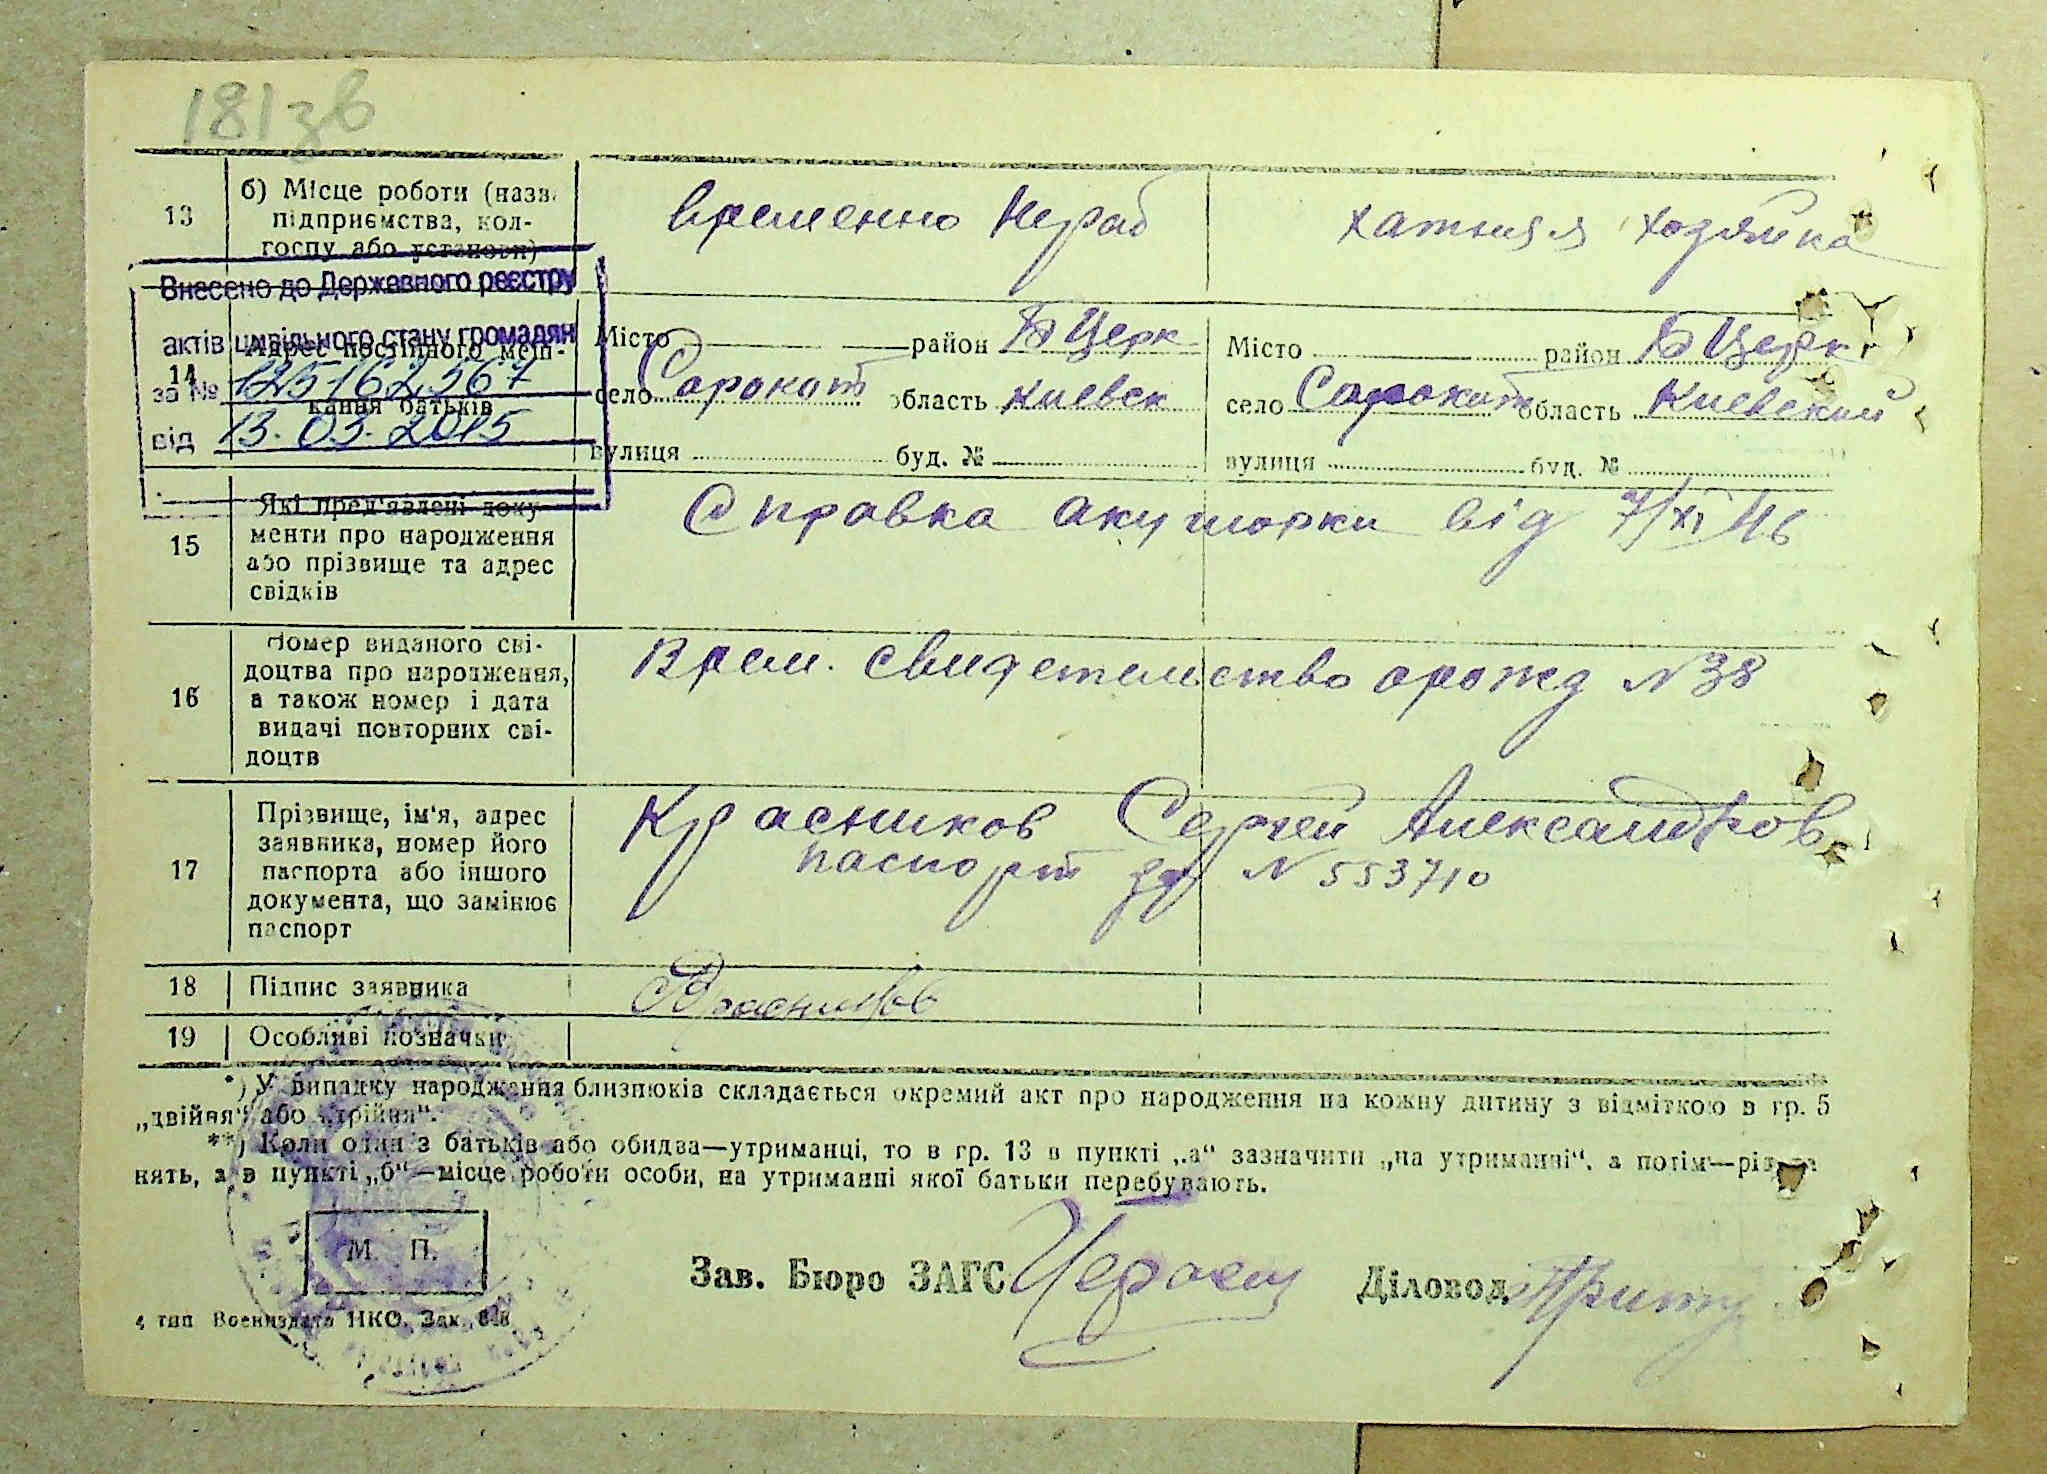 181зв
13 б) Місце роботи (назв. підприємства, колгоспу або установи) временно Нераб хатняя хозяйка
Внесено до Державного реєстру
актів цивільного стану громадян
за № 125162567
від 13.03.2015
14 Адрес постійного меш-
кання батьків
Місто район Б Церк Місто район Б Церк
село Сорокот область Киевск село Сорокот область Киевский
вулиця буд. № вулиця буд. №
15 Які пред'явлені доку-
менти про народження
або прізвище та адрес
свідків
Справка акушорки від 7/XI 46
16 Номер виданого сві-
доцтва про народження,
а також номер і дата
видачі повторних сві-
доцтв
Врем. свидетельство орожд N 38
17 Прізвище, ім'я, адрес
заявника, номер його
паспорта або іншого
документа, що замінює
паспорт
Красников Сергей Александров
паспорт N 553710
18 Підпис заявника Красников
19 Особливі позначки
*) У випадку народження близнюків складається окремий акт про народження на кожну дитину з відміткою в гр. 5
„двійня“ або „трійня“.
**) Коли один з батьків або обидва—утриманці, то в гр. 13 в пункті „а“ зазначити „на утриманні“, а потім—рід за
нять, а в пункті „б“—місце роботи особи, на утриманні якої батьки перебувають.
М. П.
Зав. Бюро ЗАГС Діловод
4 тип Воениздата НКО. Зак.